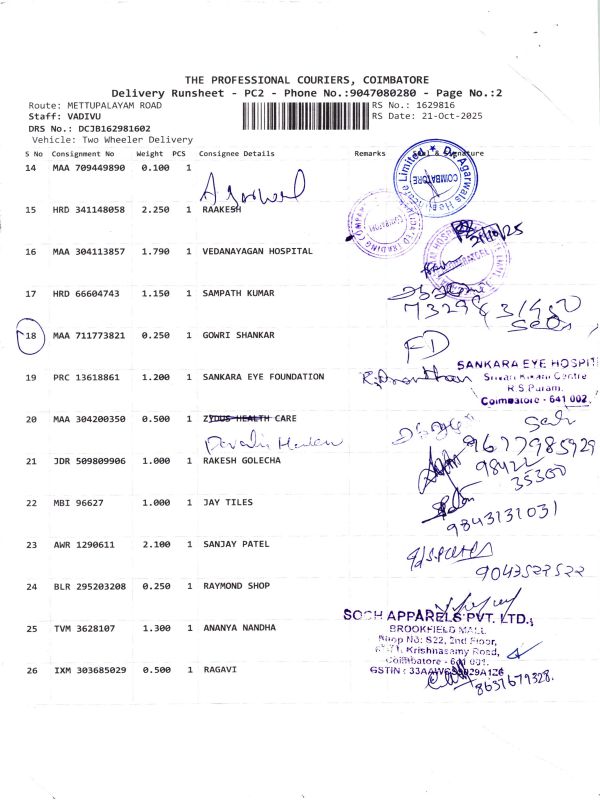 THE PROFESSIONAL COURIERS, COIMBATORE
Delivery Runsheet - PC2 - Phone No.:9047080280 - Page No.:2
Route: METTUPALAYAM ROAD
Staff: VADIVU
DRS No.: DCJB162981602
Vehicle: Two Wheeler Delivery
RS No.: 1629816
RS Date: 21-Oct-2025
S No Consignment No Weight PCS Consignee Details Remarks Seal & Signature
14 MAA 709449890 0.100 1
Agarwal
15 HRD 341148058 2.250 1 RAAKESH
COIMBATORE
21/10/25
16 MAA 304113857 1.790 1 VEDANAYAGAN HOSPITAL
17 HRD 66604743 1.150 1 SAMPATH KUMAR
18 MAA 711773821 0.250 1 GOWRI SHANKAR
FD
19 PRC 13618861 1.200 1 SANKARA EYE FOUNDATION
SANKARA EYE HOSPIT
R S Puram,
Coimbatore - 641 002
20 MAA 304200350 0.500 1 ZYDUS HEALTH CARE
9677985929
21 JDR 509809906 1.000 1 RAKESH GOLECHA
98422
35300
22 MBI 96627 1.000 1 JAY TILES
9843131031
23 AWR 1290611 2.100 1 SANJAY PATEL
9043522522
24 BLR 295203208 0.250 1 RAYMOND SHOP
SOCH APPARELS PVT. LTD.,
BROOKFIELD MALL
Shop No: S22, 2nd Floor,
Krishnasamy Road,
Coimbatore - 641 001.
25 TVM 3628107 1.300 1 ANANYA NANDHA
26 IXM 303685029 0.500 1 RAGAVI
8637679328.